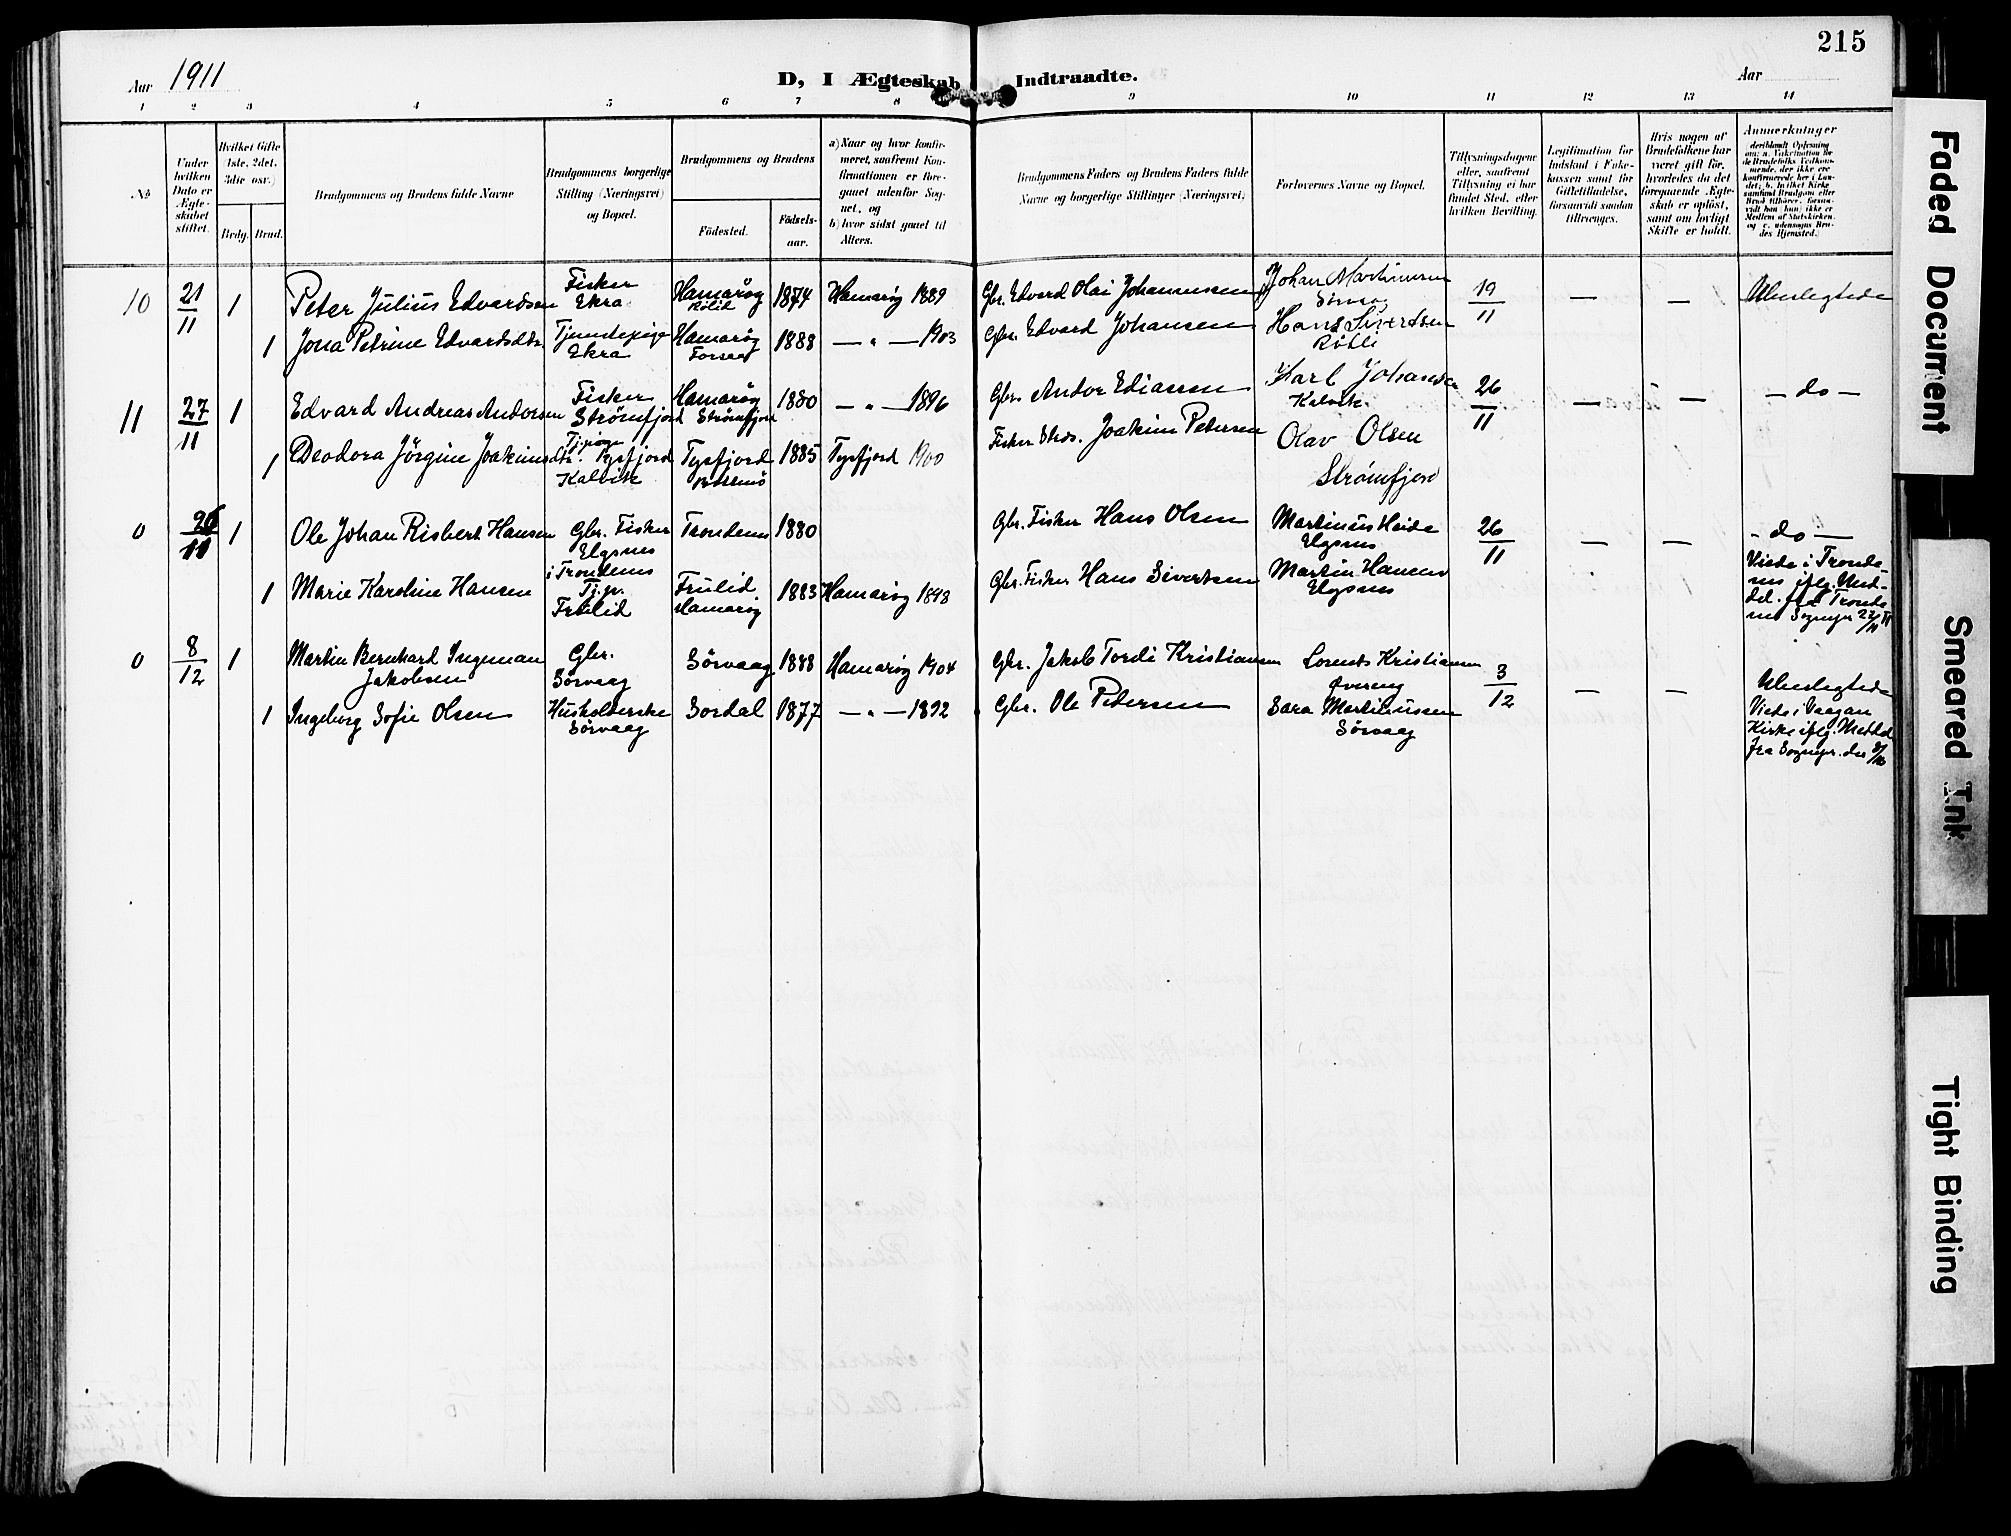 215
Aar 1911
D, I Ægteskab Indtraadte.
Aar
1 2 3 4 5 6 7 8 9 10 11 12 13 14
No
Under hvilken Dato er Ægteskabet stiftet.
Hvilket Gifte (1ste, 2det, 3die osv.)
Brdg. Brud.
Brudgommens og Brudens fulde Navne
Brudgommens borgerlige Stilling (Næringsvei) og Bopæl.
Brudgommens og Brudens
Fødested.
Fødselsaar.
a) Naar og hvor konfirmeret, saafremt Konfirmationen er foregaaet udenfor Sognet, og
b) hvor sidst gaaet til Alters.
Brudgommens Faders og Brudens Faders fulde Navne og borgerlige Stillinger (Næringsvei)
Forlovernes Navne og Bopæl.
Tillysningsdagene eller, saafremt Tillysning ei har fundet Sted, efter hvilken Bevilling.
Legitimation for Indskud i Enkekassen samt for Giftetilladelse, forsaavidt saadan tiltrænges.
Hvis nogen af Brudefolkene har været gift før, hvorledes da det foregaaende Ægteskab er opløst, samt om lovligt Skifte er holdt.
Anmerkninger
10 21/11 1 Peter Julius Edvardsen Fisker Ekra Hamarøy Rølid 1874 Hamarøy 1889 Gbr. Edvard Olai Johannessen Johan Martinussen 19/11 — — Ubeslegtede
1 Jona Petrine Edvardsdtr. Tjenestepige Ekra Hamarøy Forsaa 1888 — " — 1903 Gbr. Edvard Johansen Hans Sivertsen Røtli
11 27/11 1 Edvard Andreas Andorsen Fisker Strømfjord Hamarøy Strømfjord 1880 — " — 1896 Gbr. Andor Ediassen Karl Johansen Kalvik 26/11 — — — do —
1 Deodora Jörgine Joakimsdtr. Tj.pige Tysfjord Kalvik Tysfjord 1885 Tysfjord 1900 Fisker Joakim Petersen Olav Olsen Strømfjord
0 26/11 1 Ole Johan Risbert Hansen Gbr. Fisker Elgsnes i Trondenes Trondenes 1880 Gbr. Fisker Hans Olsen Martinus Heide Elgsnes 26/11 — — - do —
1 Marie Karoline Hansen Tj.p. Frulid Frulid Hamarøy 1883 Hamarøy 1898 Gbr. Fisker Hans Sivertsen Martin Hansen Elgsnes Viede i Trondenes iflg. Meddel. fra Trondenes Sognepr 22/11
0 8/12 1 Martin Bernhard Ingeman Jakobsen Gbr. Sörvaag Sörvaag 1888 Hamarøy 1904 Gbr. Jakob Tordi Kristiansen Lorents Kristiansen 3/12 — — Ubeslegtede
1 Ingeborg Sofie Olsen Husholderske Sörvaag Sordal 1877 — " — 1892 Gbr. Ole Pedersen Sara Martinussen Sörvaag Viede i Vaagan Kirke iflg. Meddel fra Sognepr.
Faded Document
Smeared Ink
Tight Binding